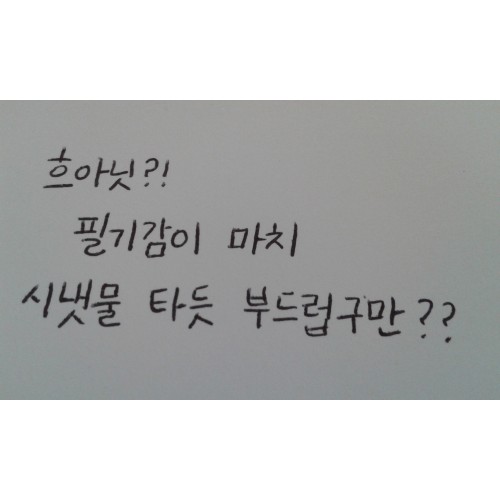 흐아닛?!
필기감이 마치
시냇물 타듯 부드럽구만??